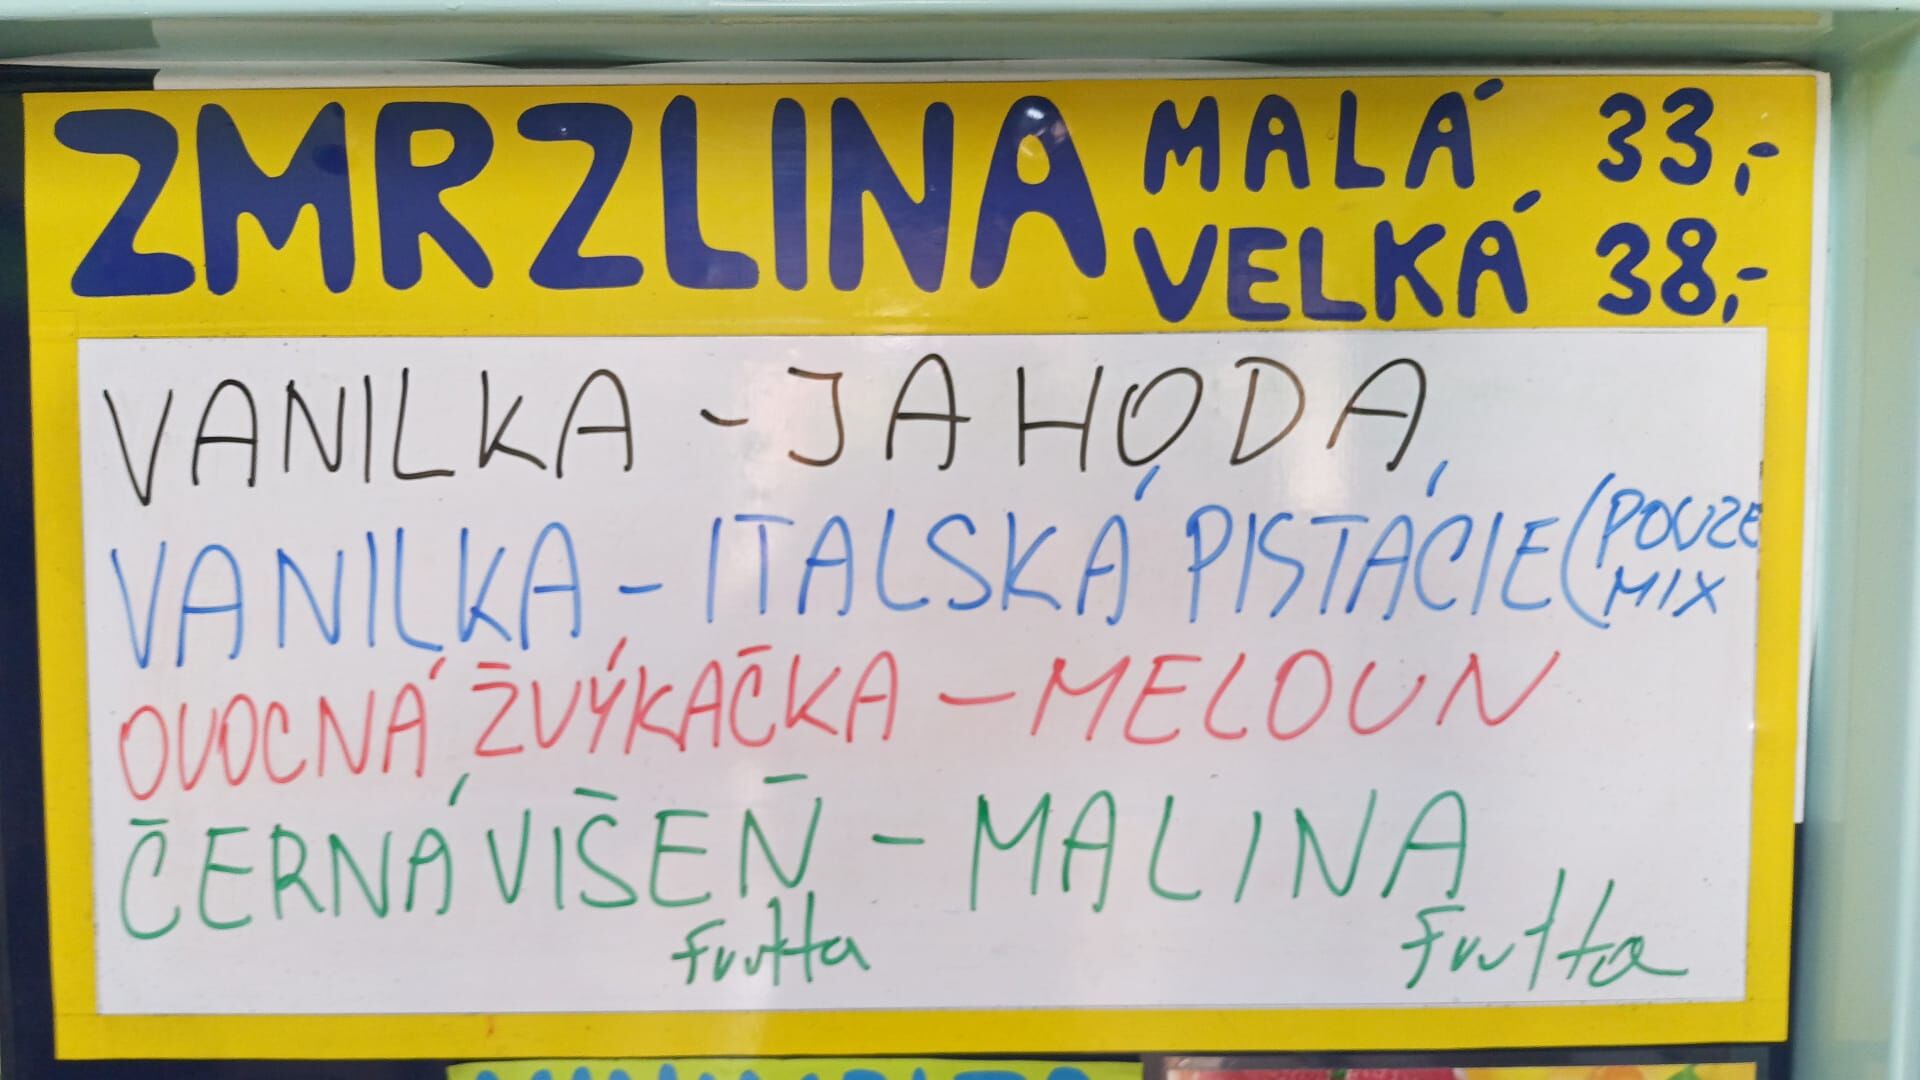 ZMRZLINA MALÁ 33,-
VELKÁ 38,-
VANILKA - JAHODA
VANILKA - ITALSKÁ PISTÁCIE (POUZE
MIX
OVOCNÁ ŽVÝKAČKA - MELOUN
ČERNÁ VIŠEŇ - MALINA
Frutta Frutta